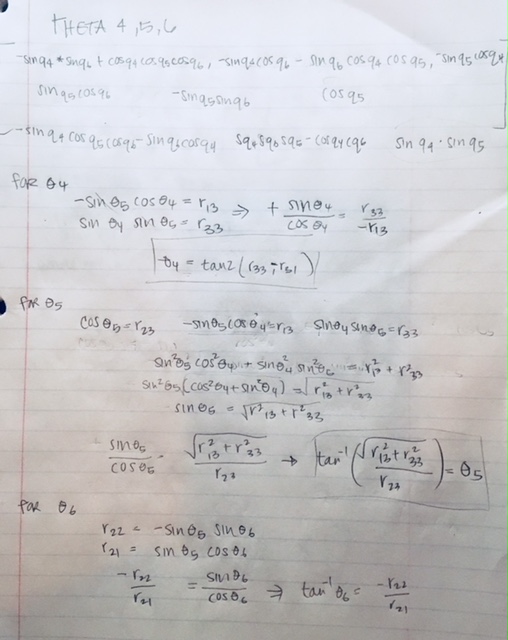 THETA 4,5,6
-sinq4*sinq6 + cosq4 cosq5cosq6, -sinq4cosq6 - sinq6 cosq4 cosq5, -sinq5cosq4
sinq5cosq6 -sinq5sinq6 cosq5
-sinq4 cosq5cosq6 - sinq6cosq4 sq4sq6sq5 - cosq4cq6 sinq4 · sinq5
for θ4
-sinθ5 cosθ4 = r13
sinθ4 sinθ5 = r33 ⇒ + sinθ4/cosθ4 = r33/-r13
θ4 = tan2(r33, -r31)
for θ5
cosθ5 = r23 -sinθ5cosθ4 = r13 sinθ4sinθ5 = r33
sin²θ5 cos²θ4 + sinθ4² sin²θ5 = r²13 + r²33
sin²θ5(cos²θ4 + sin²θ4) = √r²13 + r²33
sinθ5 = √r²13 + r²33
sinθ5/cosθ5 = √r²13 + r²33/r23 → tan⁻¹(√r²13 + r²33/r23) = θ5
for θ6
r22 = -sinθ5 sinθ6
r21 = sinθ5 cosθ6
-r22/r21 = sinθ6/cosθ6 ⇒ tan⁻¹θ6 = -r22/r21